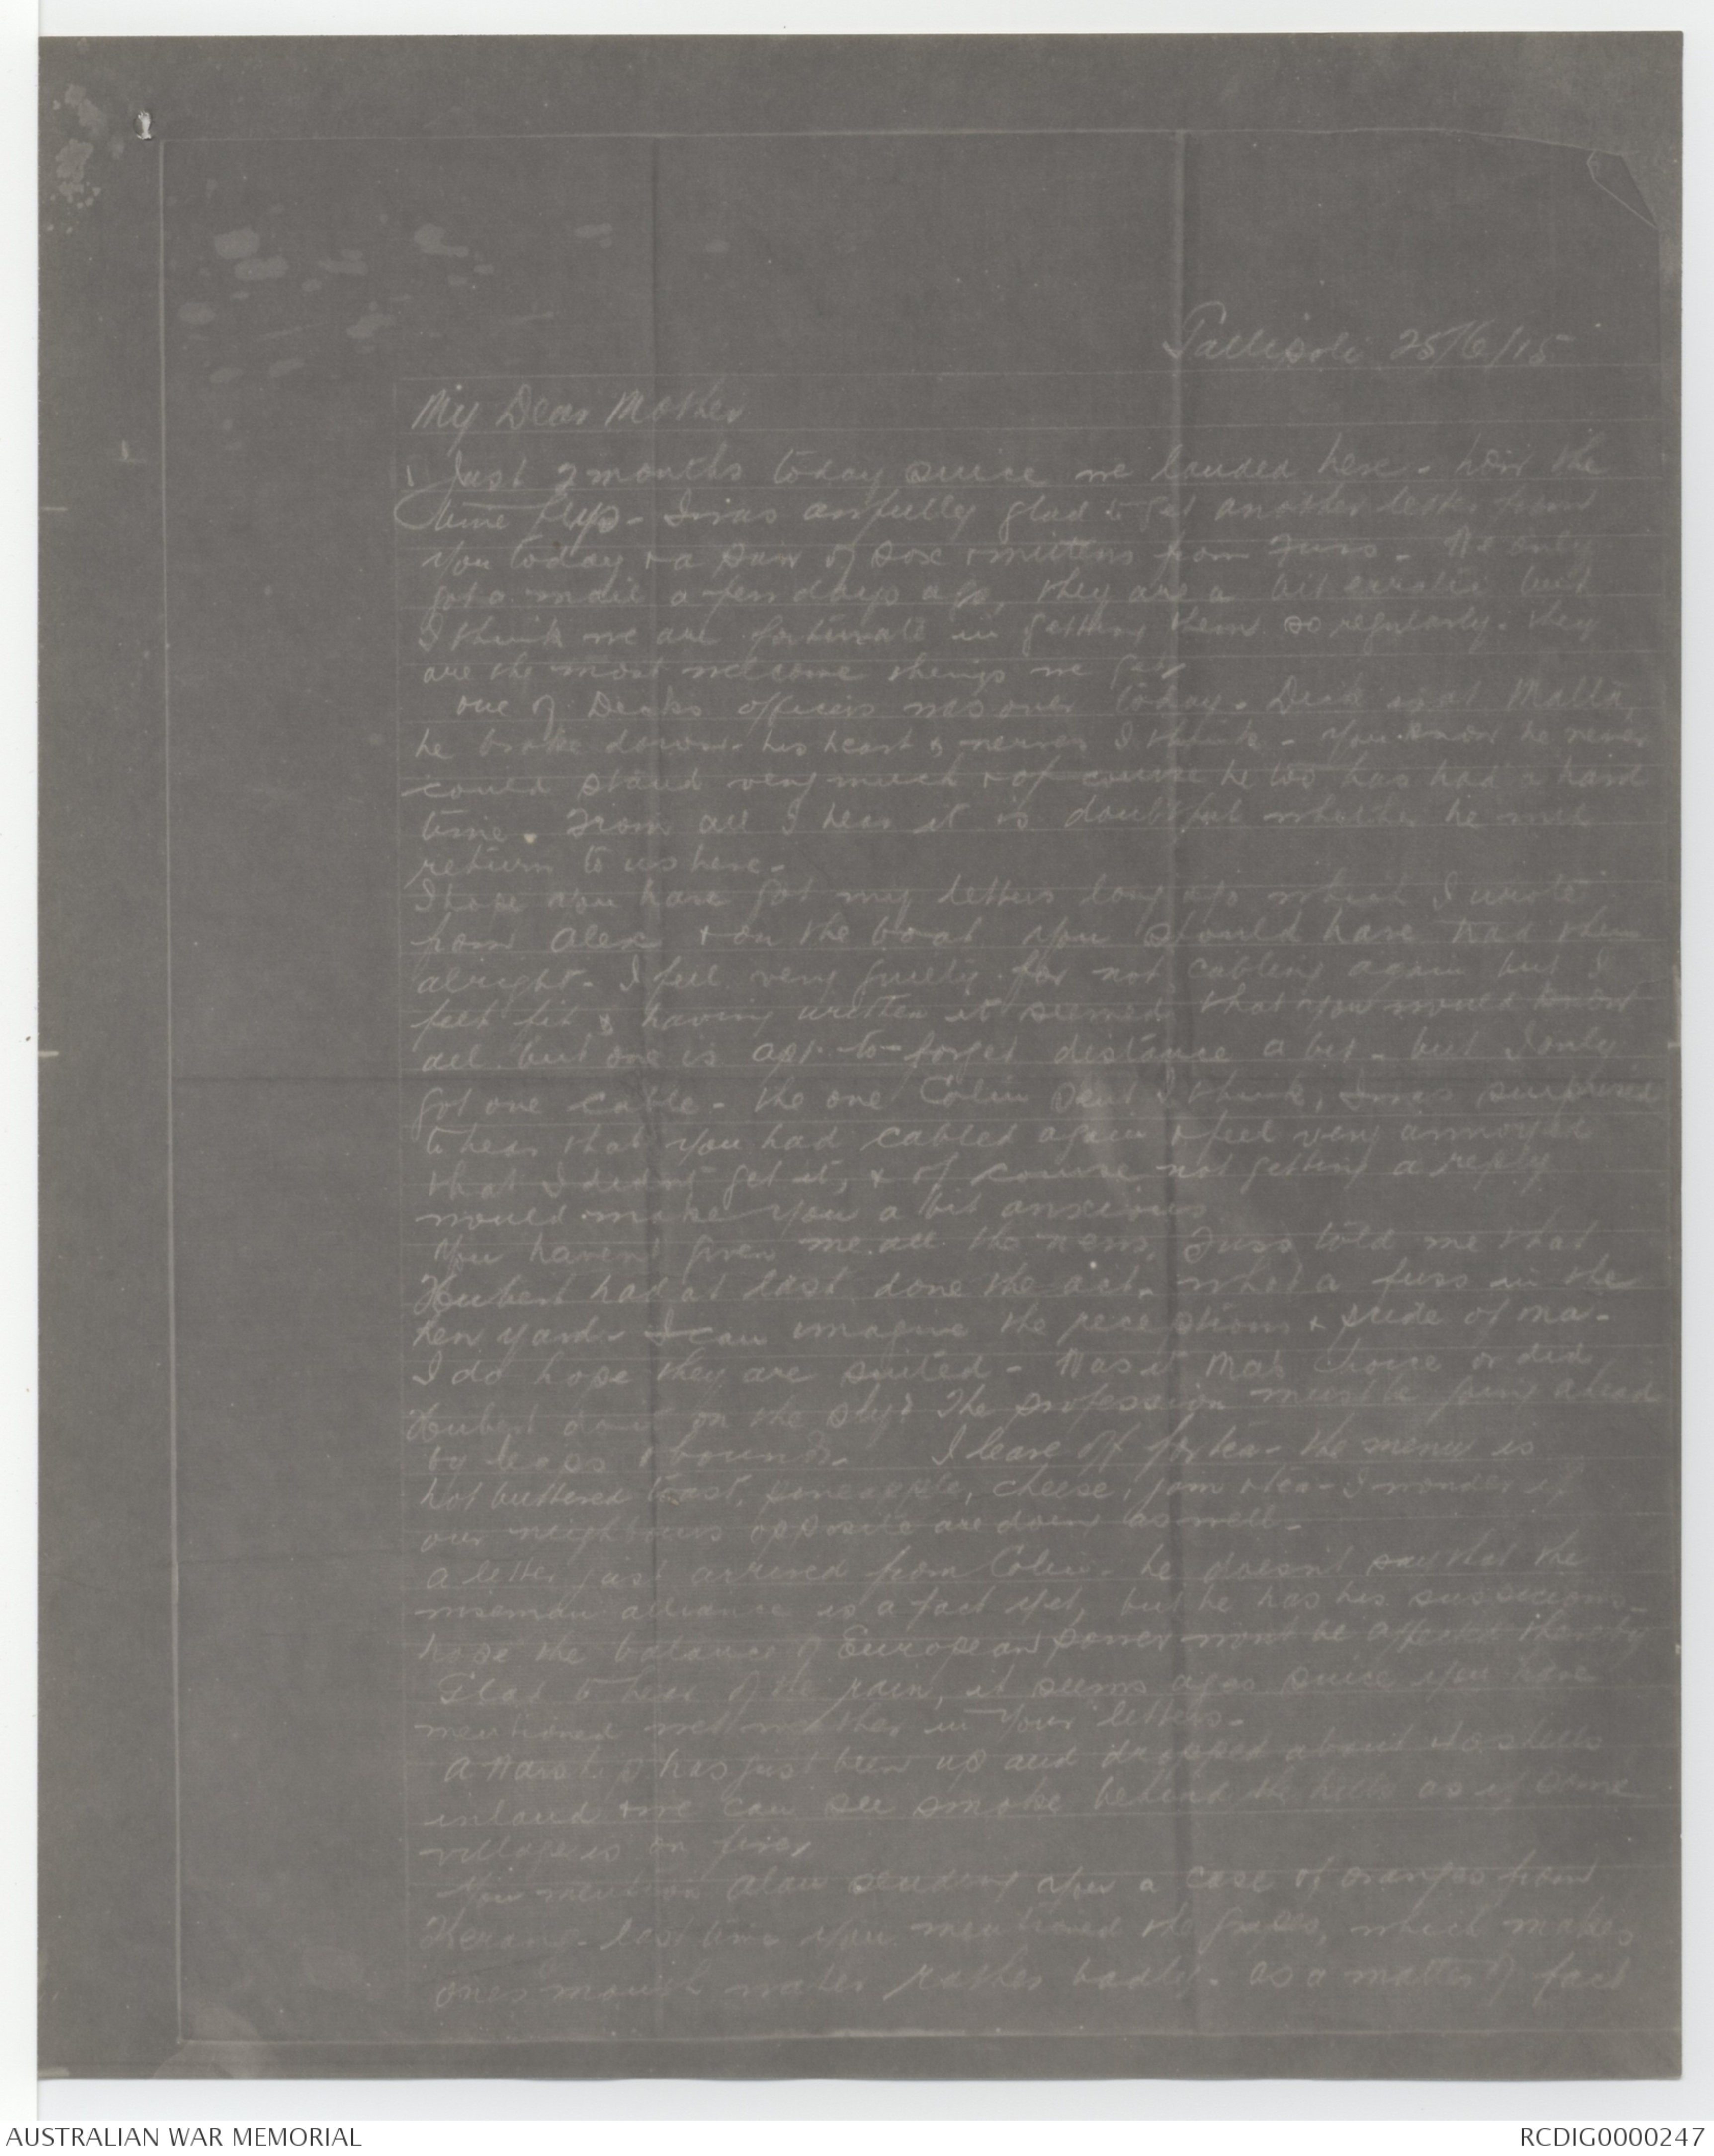 Gallipoli 25/6/15
My Dear Mother
Just 2 months today since we landed here - how the
time flys - I was awfully glad to get another letter from
you today & a pair of sox & mittens from Juss - We only
got a mail a few days ago, they are a bit erratic but
I think we are fortunate in getting them so regularly - they
are the most welcome things we get,
one of Dicks officers was over today - Dick is at Malta,
he broke down - his heart & nerves I think - you know he never
could stand very much & of course he too has had a hard
time. From all I hear it is doubtful whether he will
return to us here -
I hope you have got my letters long ago which I wrote
from Alex & on the boat you should have had them
alright - I feel very guilty for not cabling again but I
felt fit & having written it seemed that you would know
all but one is apt to forget distance a bit - but I only
got one cable - the one Colin sent I think, I was surprised
to hear that you had cabled again & feel very annoyed
that I didn't get it, & of course not getting a reply
would make you a bit anxious
You havent given me all the news, Juss told me that
Hubert had at last done the act - what a fuss in the
hen yard - I can imagine the receptions & pride of ma -
I do hope they are suited - Was it Mas choice or did
Hubert do it on the sly? The profession must be going ahead
by leaps & bounds. I leave off for tea - the menu is
hot buttered toast, pineapple, cheese, jam & tea - I wonder if
our neighbours opposite are doing as well -
a letter just arrived from Colin - he doesn't say that the
wiseman alliance is a fact yet, but he has his suspicions -
hope the balance of European power wont be affected thereby
Glad to hear of the rain, it seems ages since you have
mentioned wet weather in your letters -
A Warship has just been up and dropped about 40 shells
inland & we can see smoke behind the hills as if some
village is on fire,
You mention Alan sending you a case of oranges from
Kerang - last time you mentioned the grapes, which makes
ones mouth water rather badly - as a matter of fact
AUSTRALIAN WAR MEMORIAL
RCDIG0000247